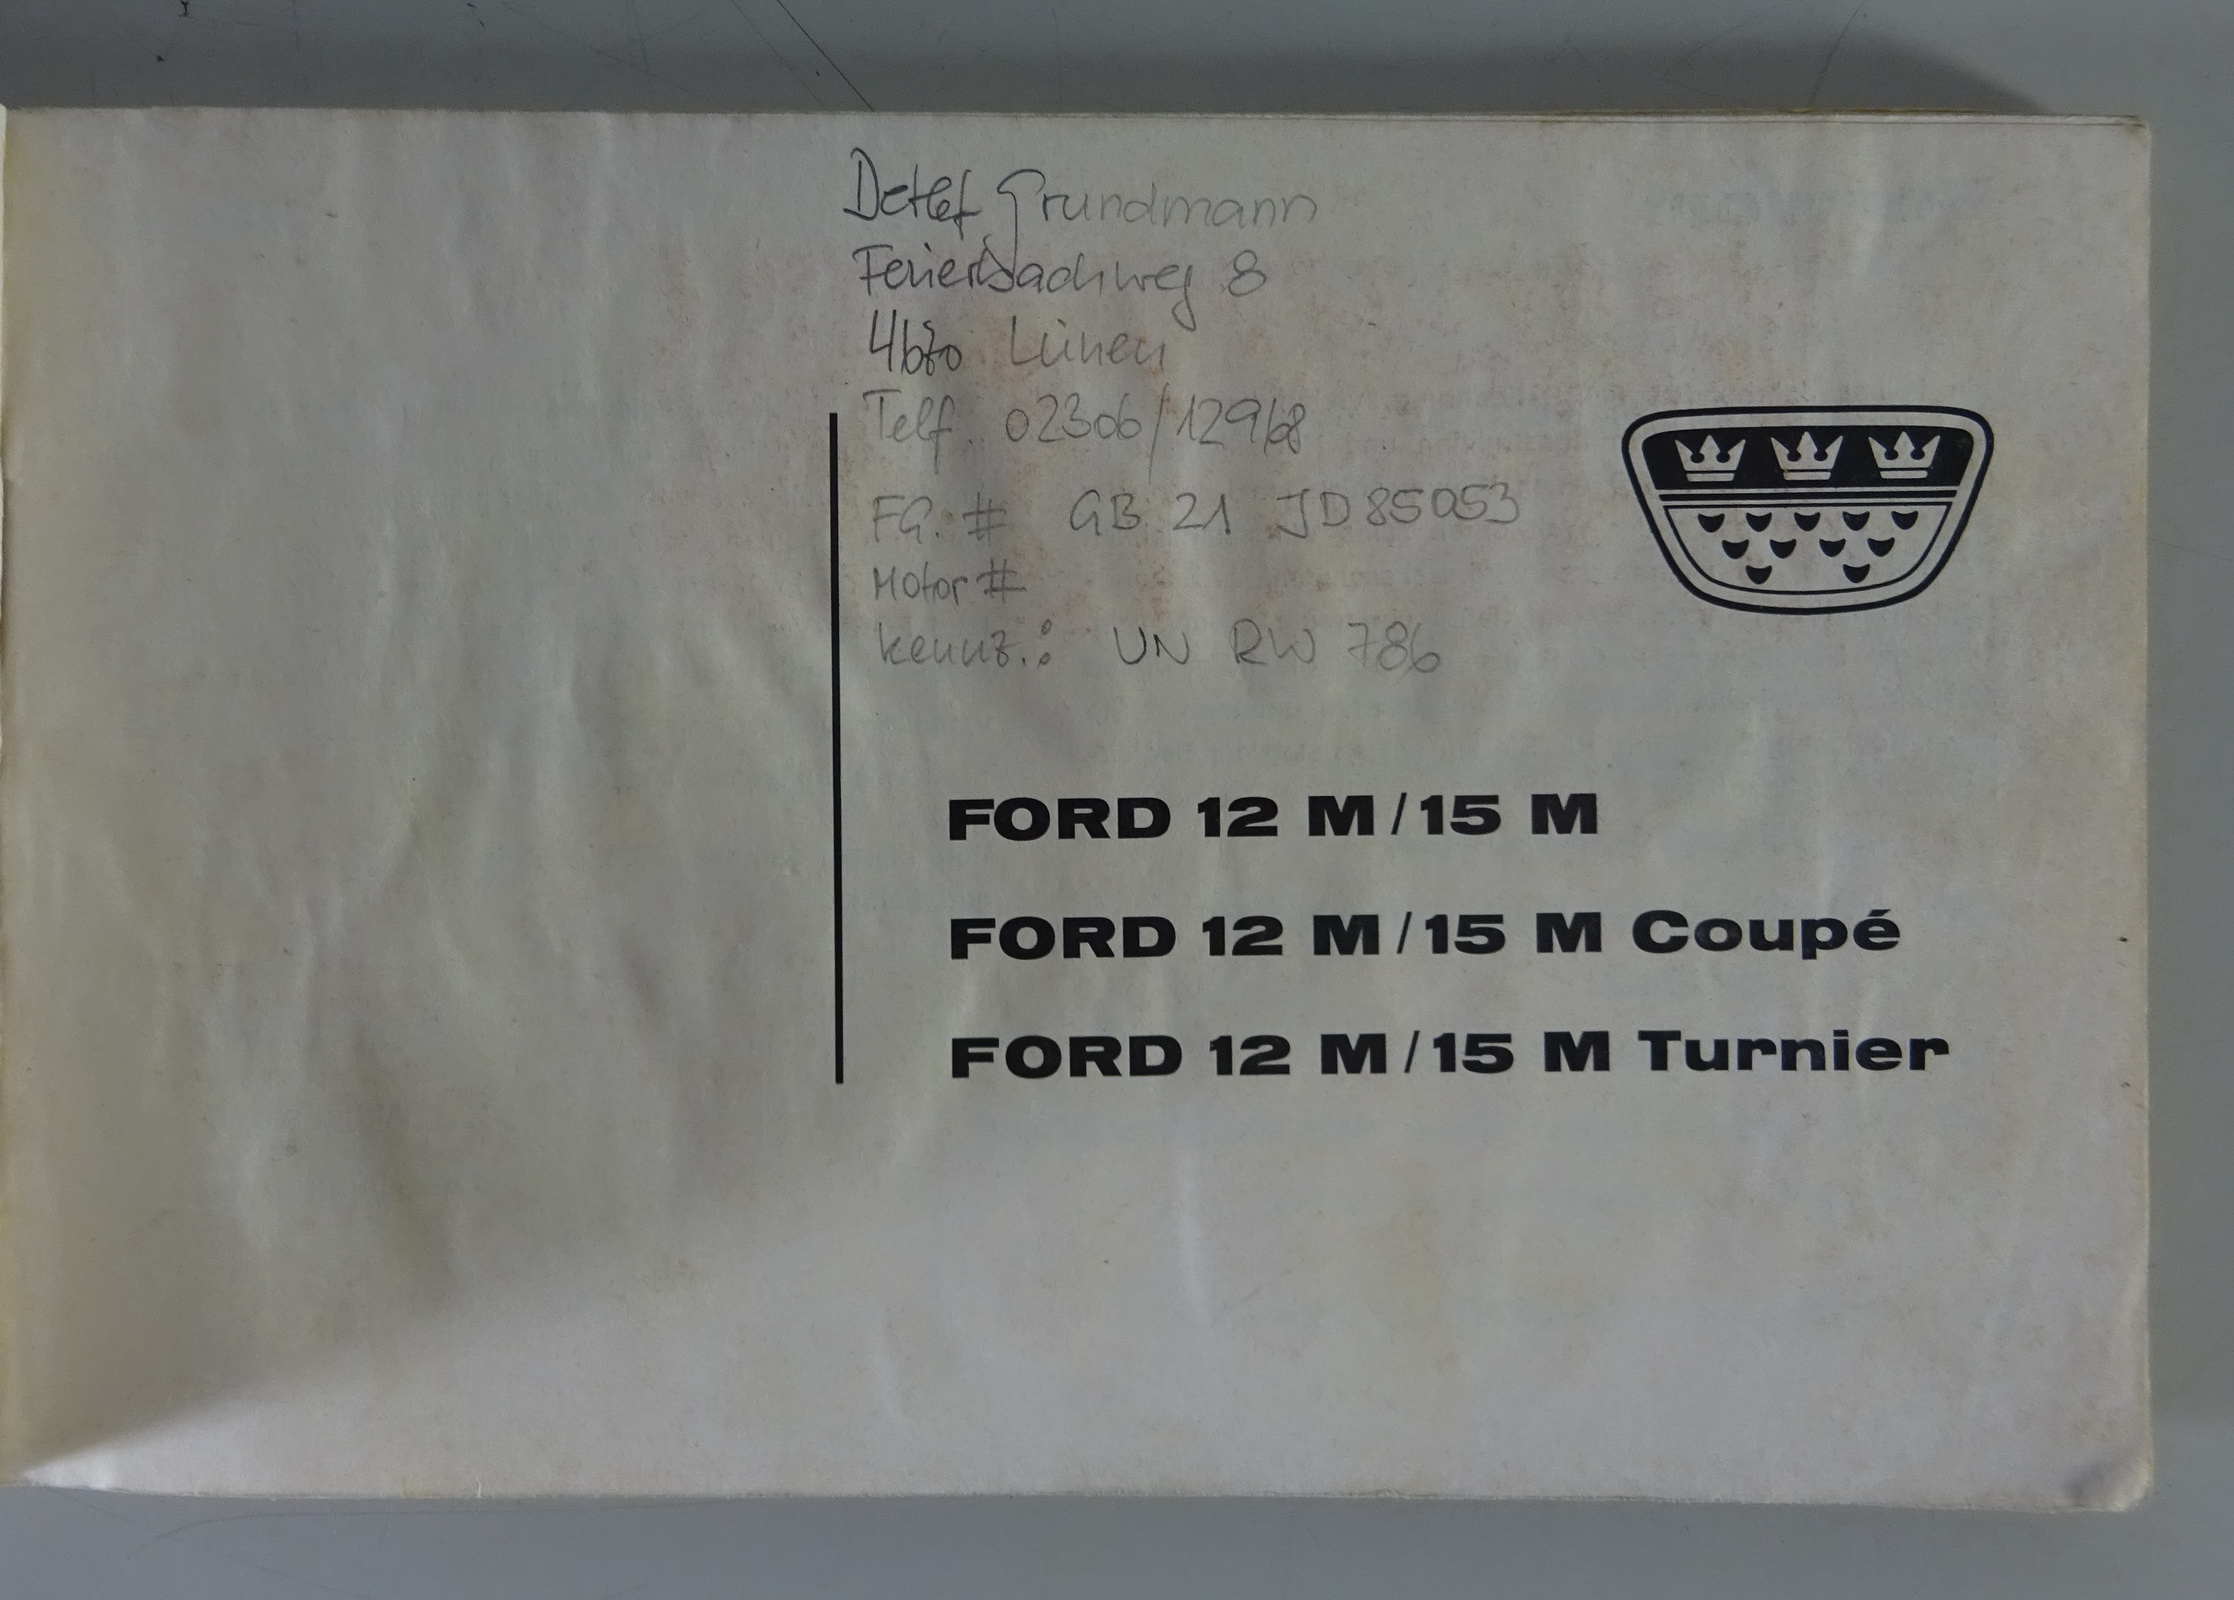 Detlef Grundmann
Feuerbachweg 8
4670 Lünen
Telf. 02306/12968
FG.: # GB 21 JD85053
Motor #
Kennz.: UN RW 786
FORD 12 M/15 M
FORD 12 M/15 M Coupé
FORD 12 M/15 M Turnier